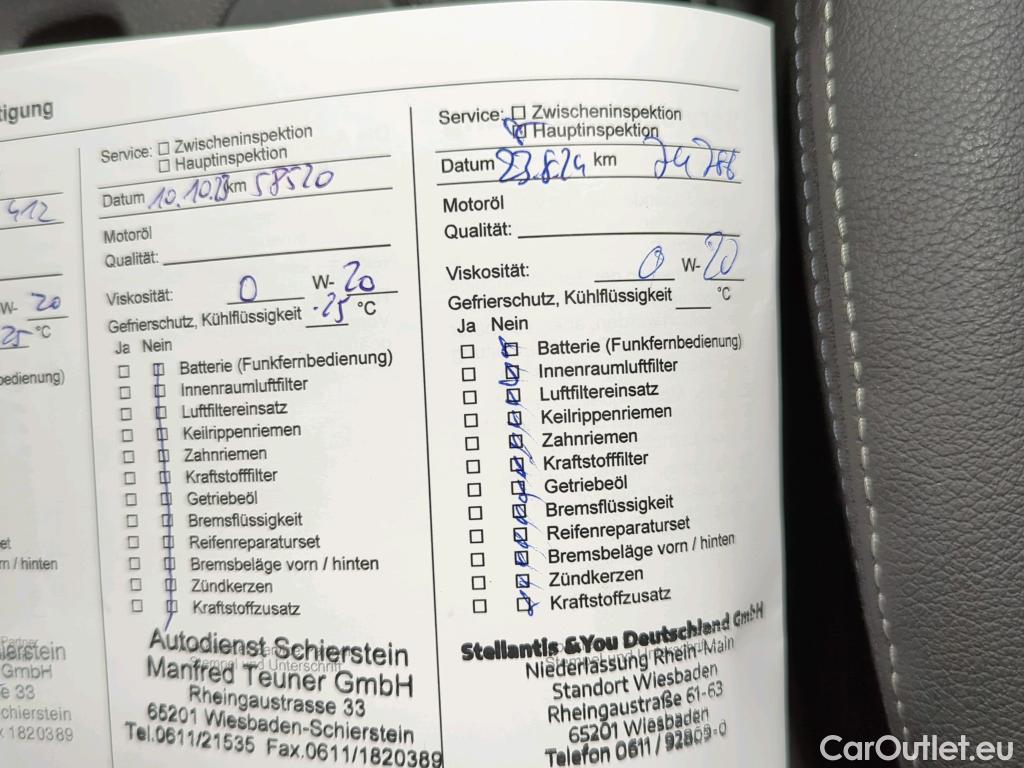 tigung
412
W- 20
25 °C
bedienung)
et
rn / hinten
Partner
ierstein
GmbH
e 33
chierstein
x 1820389
Service: Zwischeninspektion
Hauptinspektion
Datum 10.10.23 km 58520
Motoröl
Qualität:
Viskosität: 0 W- 20
Gefrierschutz, Kühlflüssigkeit -25 °C
Ja Nein
Batterie (Funkfernbedienung)
Innenraumluftfilter
Luftfiltereinsatz
Keilrippenriemen
Zahnriemen
Kraftstofffilter
Getriebeöl
Bremsflüssigkeit
Reifenreparaturset
Bremsbeläge vorn / hinten
Zündkerzen
Kraftstoffzusatz
Autodienst Schierstein
Stempel und Unterschrift
Manfred Teuner GmbH
Rheingaustrasse 33
65201 Wiesbaden-Schierstein
Tel.0611/21535 Fax.0611/1820389
Service: Zwischeninspektion
Hauptinspektion
Datum 23.8.24 km 74788
Motoröl
Qualität:
Viskosität: 0 W- 20
Gefrierschutz, Kühlflüssigkeit °C
Ja Nein
Batterie (Funkfernbedienung)
Innenraumluftfilter
Luftfiltereinsatz
Keilrippenriemen
Zahnriemen
Kraftstofffilter
Getriebeöl
Bremsflüssigkeit
Reifenreparaturset
Bremsbeläge vorn / hinten
Zündkerzen
Kraftstoffzusatz
Stellantis &You Deutschland GmbH
Niederlassung Rhein-Main
Standort Wiesbaden
Rheingaustraße 61-63
65201 Wiesbaden
Telefon 0611 /
CarOutlet.eu